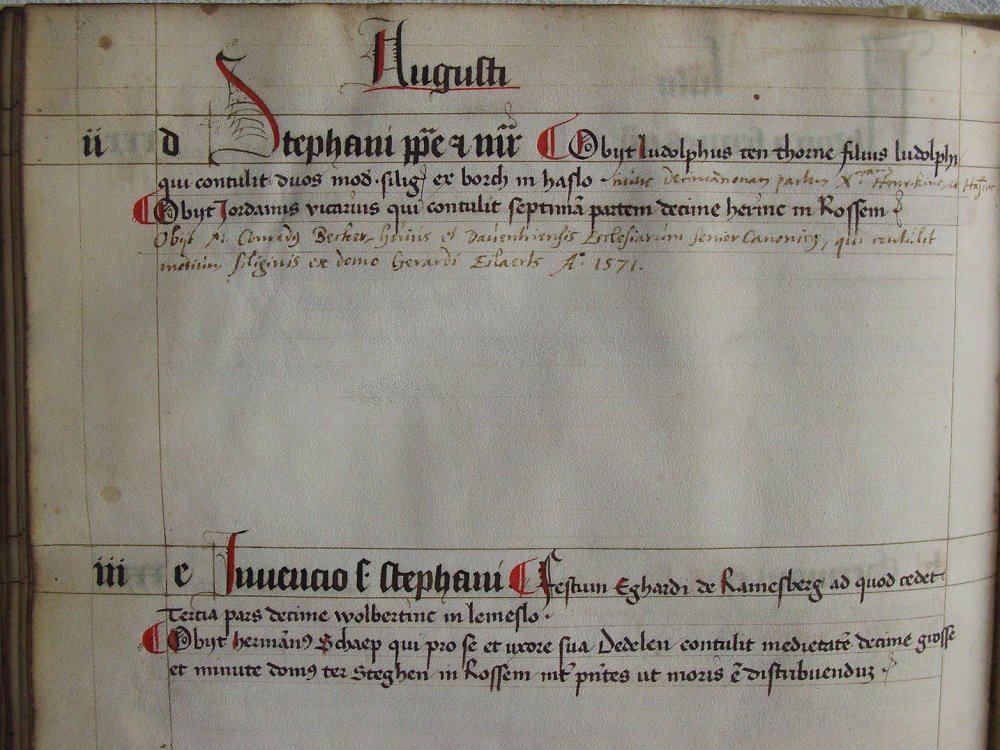 Augusti
ii d Stephani pp̄e ⁊ mr̄ Obijt Ludolphus ten thorne filius ludolphi
qui contulit duos mod silig ex borch in haslo nunc
Obijt Jordanus vicarius qui contulit septimā partem decime herinc in Rossem
Obijt M. Conradus Becker huius et Daventriensis Ecclesiarum senior Canonicus, qui contulit
modium siliginis ex domo Gerardi Eilaerts A° 1571.
iii e Inuencio s stephani Festum Eghardi de Ramesberg ad quod cedet
Tercia pars decime wolbertinc in lemeslo
Obijt hermān9 Schaep qui pro se et vxore sua Dedelen contulit medietatē decime grosse
et minute dom9 ter Steghen in Rossem int̄ pn̄tes ut moris ē distribuenduz